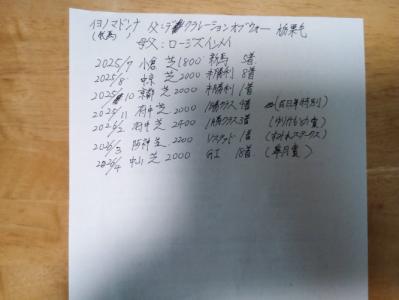 イヨノマドンナ 父:デクラレーションオブウォー 栃栗毛
(牝馬) 母父:ローズインメイ
2025/7 小倉 芝1800 新馬 5着
2025/8 中京 芝2000 未勝利 8着
2025/10 京都 芝2000 未勝利 1着
2025/11 府中 芝2000 1勝クラス 4着 (百日草特別)
2026/2 府中 芝2400 1勝クラス 3着 (ゆりかもめ賞)
2026/3 阪神 芝2200 リステッド 1着 (すみれステークス)
2026/4 中山 芝2000 GI 18着 (皐月賞)